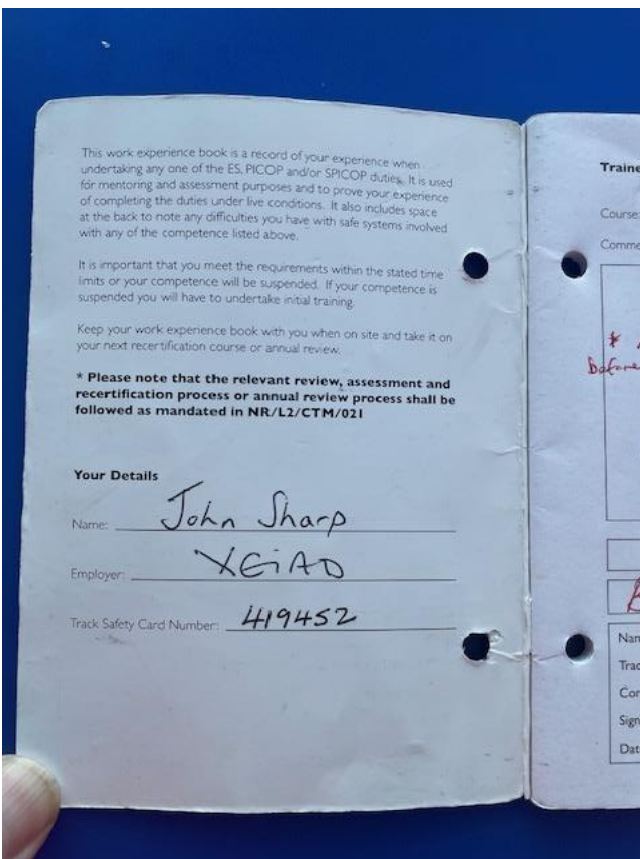 This work experience book is a record of your experience when
undertaking any one of the ES, PICOP and/or SPICOP duties. It is used
for mentoring and assessment purposes and to prove your experience
of completing the duties under live conditions. It also includes space
at the back to note any difficulties you have with safe systems involved
with any of the competence listed above.
It is important that you meet the requirements within the stated time
limits or your competence will be suspended. If your competence is
suspended you will have to undertake initial training.
Keep your work experience book with you when on site and take it on
your next recertification course or annual review.
* Please note that the relevant review, assessment and
recertification process or annual review process shall be
followed as mandated in NR/L2/CTM/021
Your Details
Name: John Sharp
Employer: XEiAD
Track Safety Card Number: 419452
Traine
Course:
Comme
*
Before
Nam
Trac
Con
Sign
Dat